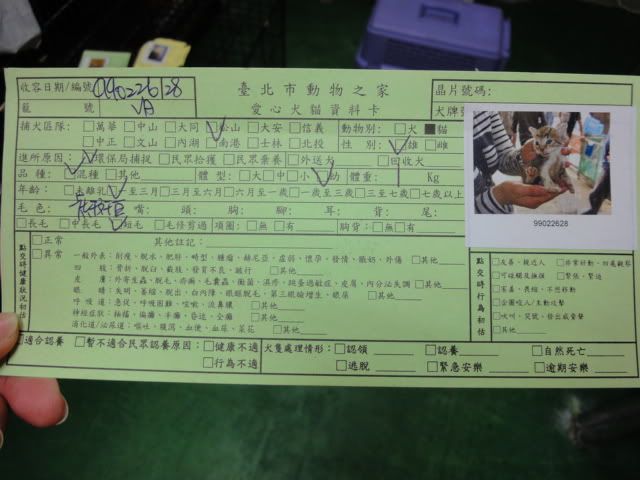 收容日期/編號 090226128 臺北市動物之家 晶片號碼:
籠 號 VA 愛心犬貓資料卡
捕犬區隊: □萬華 □中山 □大同 ☑松山 □大安 □信義 動物別: □犬 ■貓
□中正 □文山 □內湖 □南港 □士林 □北投 性 別: ☑雄 □雌
進所原因: ☑環保局捕捉 □民眾拾獲 □民眾棄養 □外送犬 □回收犬
品 種: ☑混種 □其他 體 型: □大 □中 □小 ☑幼 體重: Kg
年齡: ☑未離乳 □至三月 □三月至六月 □六月至一歲 □一歲至三歲 □三至七歲 □七歲以上
毛 色: 嘴: 頭: 胸: 腳: 耳: 背: 尾:
□長毛 □中長毛 ☑短毛 □毛修剪過 項圈: □無 □有 胸背: □無 □有
99022628
點交時健康狀況初估
□正常 其他註記:
□異常 一般外表: 削瘦、脫水、肥胖、畸型、腫瘤、赫尼亞、虛弱、懷孕、發情、餵奶、外傷 □其他
四 肢: 骨折、脫臼、截肢、發育不良、跛行 □其他
皮 膚: 外寄生蟲、脫毛、疥癬、毛囊蟲、黴菌、濕疹、跳蚤過敏症、皮膚、內分泌失調 □其他
眼 睛: 失明、萎縮、脫出、白內障、眼瞼脫毛、第三眼瞼增生、眼屎 □其他
呼吸道: 急促、呼吸困難、咳嗽、流鼻膿 □其他
神經症狀: 抽搐、偏癱、半癱、昏迷、全癱 □其他
消化道/泌尿道: 嘔吐、腹瀉、血便、血尿、菜花 □其他
點交時行為初估
□友善、親近人
□可碰觸及撫摸 □緊張、緊迫
□害羞、畏縮、不想移動
□企圖咬人/主動攻擊
□吠叫、哭號、發出威脅聲
□其他
□適合認養 □暫不適合民眾認養原因: □健康不適 犬隻處理情形: □認領 □認養 □自然死亡
□行為不適 □逃脫 □緊急安樂 □逾期安樂